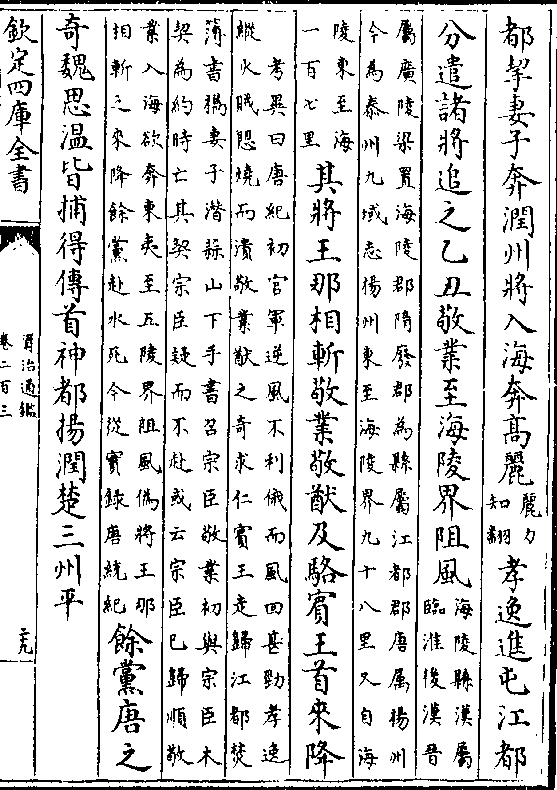 都挈妻子奔潤州將入海奔髙麗麗力知翻孝逸進屯江都
分遣諸將追之乙丑敬業至海陵界阻風海陵縣漢屬臨淮後漢晉
屬廣陵梁置海陵郡隋廢郡為縣屬江都郡唐屬揚州
今為泰州九域志揚州東至海陵界九十八里又自海
陵東至海一百七里其將王那相斬敬業敬猷及駱賓王首來降
考異曰唐紀初官軍逆風不利俄而風回甚勁孝逸
縱火賊愳燒而潰敬業猷之奇求仁賓王走歸江都焚
簿書攜妻子潛蒜山下手書召宗臣敬業初與宗臣木
契為約時亡其契宗臣疑而不赴或云宗臣已歸順敬
業入海欲奔東夷至五陵界阻風偽將王那
相斬之來降餘黨赴水死今從實錄唐統紀餘黨唐之
奇魏思溫皆捕得傳首神都揚潤楚三州平
欽定四庫全書
資治通鑑
卷二百三